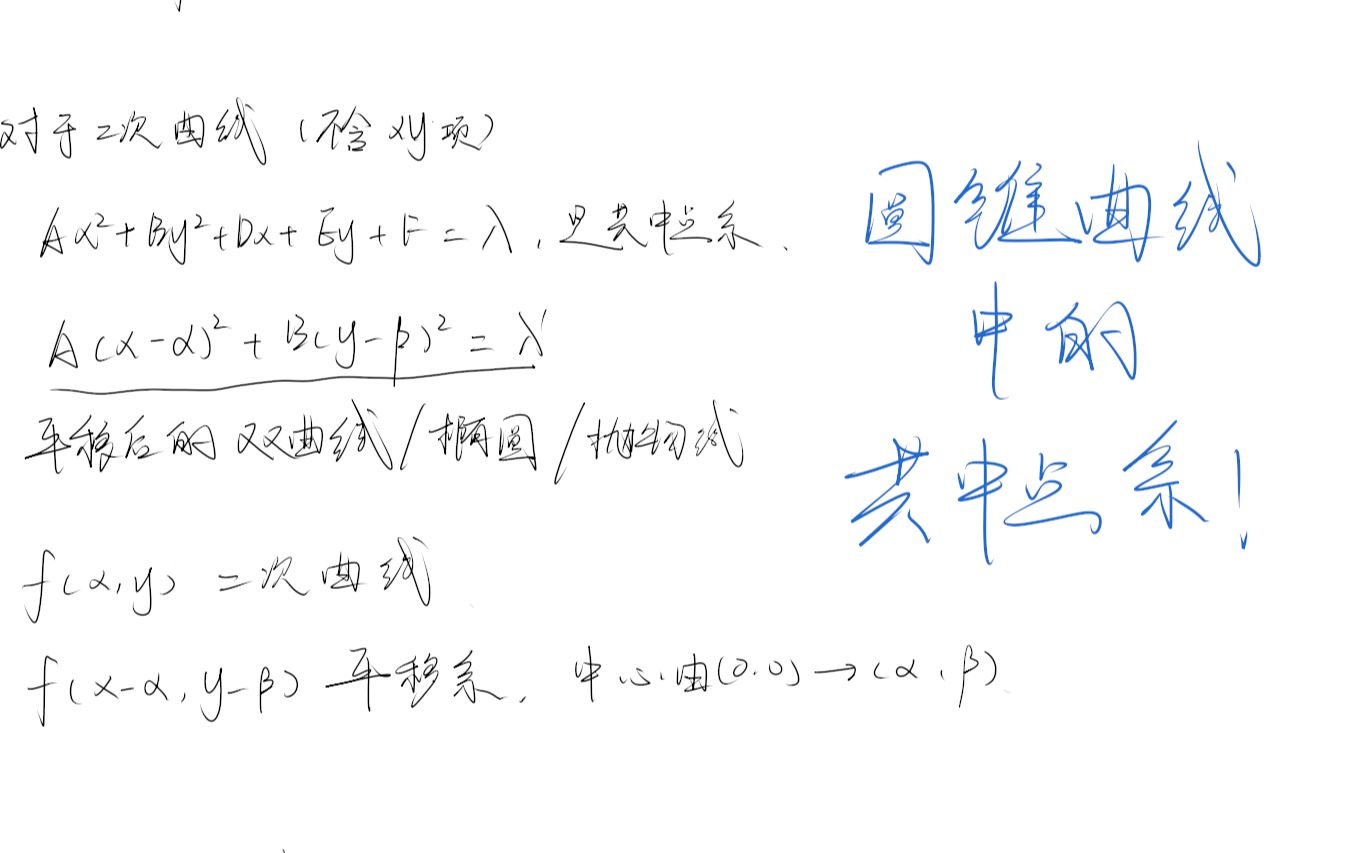 对于二次曲线（不含xy项）
Ax²+By²+Dx+Ey+F=λ，是共中点系.
A(x-α)²+B(y-β)²=λ'
平移后的双曲线/椭圆/抛物线
f(x,y) 二次曲线
f(x-α,y-β) 平移系，中心由(0.0)→(α,β)
圆锥曲线
中的
共中点系！